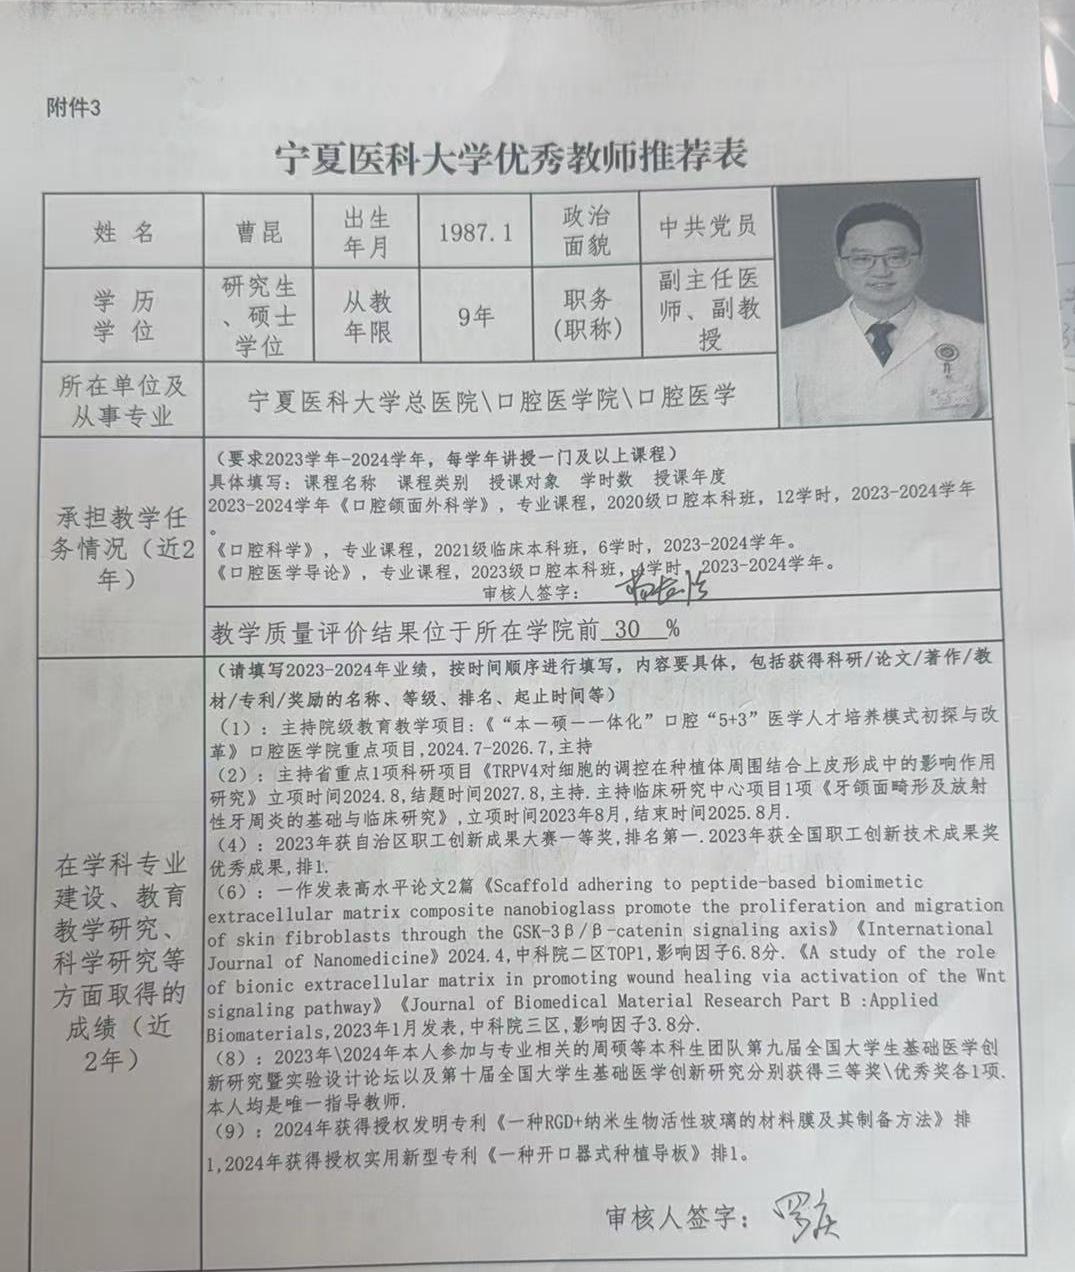 附件3
宁夏医科大学优秀教师推荐表
姓 名
曹昆
出生
年月
1987.1
政治
面貌
中共党员
学 历
学 位
研究生
、硕士
学位
从教
年限
9年
职务
(职称)
副主任医
师、副教
授
所在单位及
从事专业
宁夏医科大学总医院\口腔医学院\口腔医学
承担教学任
务情况（近2
年）
（要求2023学年-2024学年，每学年讲授一门及以上课程）
具体填写：课程名称 课程类别 授课对象 学时数 授课年度
2023-2024学年《口腔颌面外科学》，专业课程，2020级口腔本科班，12学时，2023-2024学年
。
《口腔科学》，专业课程，2021级临床本科班，6学时，2023-2024学年。
《口腔医学导论》，专业课程，2023级口腔本科班，学时，2023-2024学年。
审核人签字：
教学质量评价结果位于所在学院前 30 %
在学科专业
建设、教育
教学研究、
科学研究等
方面取得的
成绩（近
2年）
（请填写2023-2024年业绩，按时间顺序进行填写，内容要具体，包括获得科研/论文/著作/教
材/专利/奖励的名称、等级、排名、起止时间等）
（1）：主持院级教育教学项目：《“本一硕一一体化”口腔“5+3”医学人才培养模式初探与改
革》口腔医学院重点项目,2024.7-2026.7,主持
（2）：主持省重点1项科研项目《TRPV4对细胞的调控在种植体周围结合上皮形成中的影响作用
研究》立项时间2024.8,结题时间2027.8,主持.主持临床研究中心项目1项《牙颌面畸形及放射
性牙周炎的基础与临床研究》,立项时间2023年8月,结束时间2025.8月.
（4）：2023年获自治区职工创新成果大赛一等奖,排名第一.2023年获全国职工创新技术成果奖
优秀成果,排1.
（6）：一作发表高水平论文2篇《Scaffold adhering to peptide-based biomimetic
extracellular matrix composite nanobioglass promote the proliferation and migration
of skin fibroblasts through the GSK-3β/β-catenin signaling axis》《International
Journal of Nanomedicine》2024.4,中科院二区TOP1,影响因子6.8分.《A study of the role
of bionic extracellular matrix in promoting wound healing via activation of the Wnt
signaling pathway》《Journal of Biomedical Material Research Part B :Applied
Biomaterials,2023年1月发表,中科院三区,影响因子3.8分.
（8）：2023年\2024年本人参加与专业相关的周硕等本科生团队第九届全国大学生基础医学创
新研究暨实验设计论坛以及第十届全国大学生基础医学创新研究分别获得三等奖\优秀奖各1项.
本人均是唯一指导教师.
（9）：2024年获得授权发明专利《一种RGD+纳米生物活性玻璃的材料膜及其制备方法》排
1,2024年获得授权实用新型专利《一种开口器式种植导板》排1。
审核人签字：